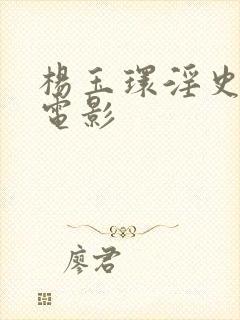 楊玉環淫史
電影
廖君